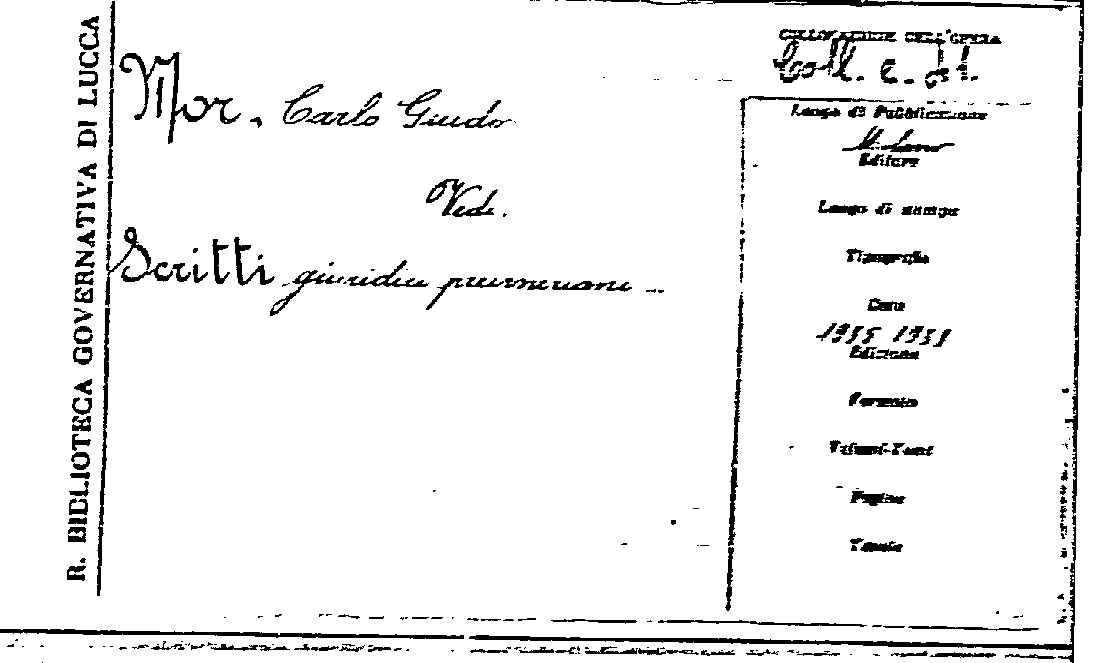 R. BIBLIOTECA GOVERNATIVA DI LUCCA
Mor, Carlo Guido
Vedi.
Scritti giuridici preirneriani
COLLOCAZIONE DELL'OPERA
Coll. e.
Luogo di Pubblicazione
Milano
Editore
Luogo di stampa
Tipografia
Data
1935 1938
Edizione
Formato
Volumi-Tomi
Pagine
Tavole